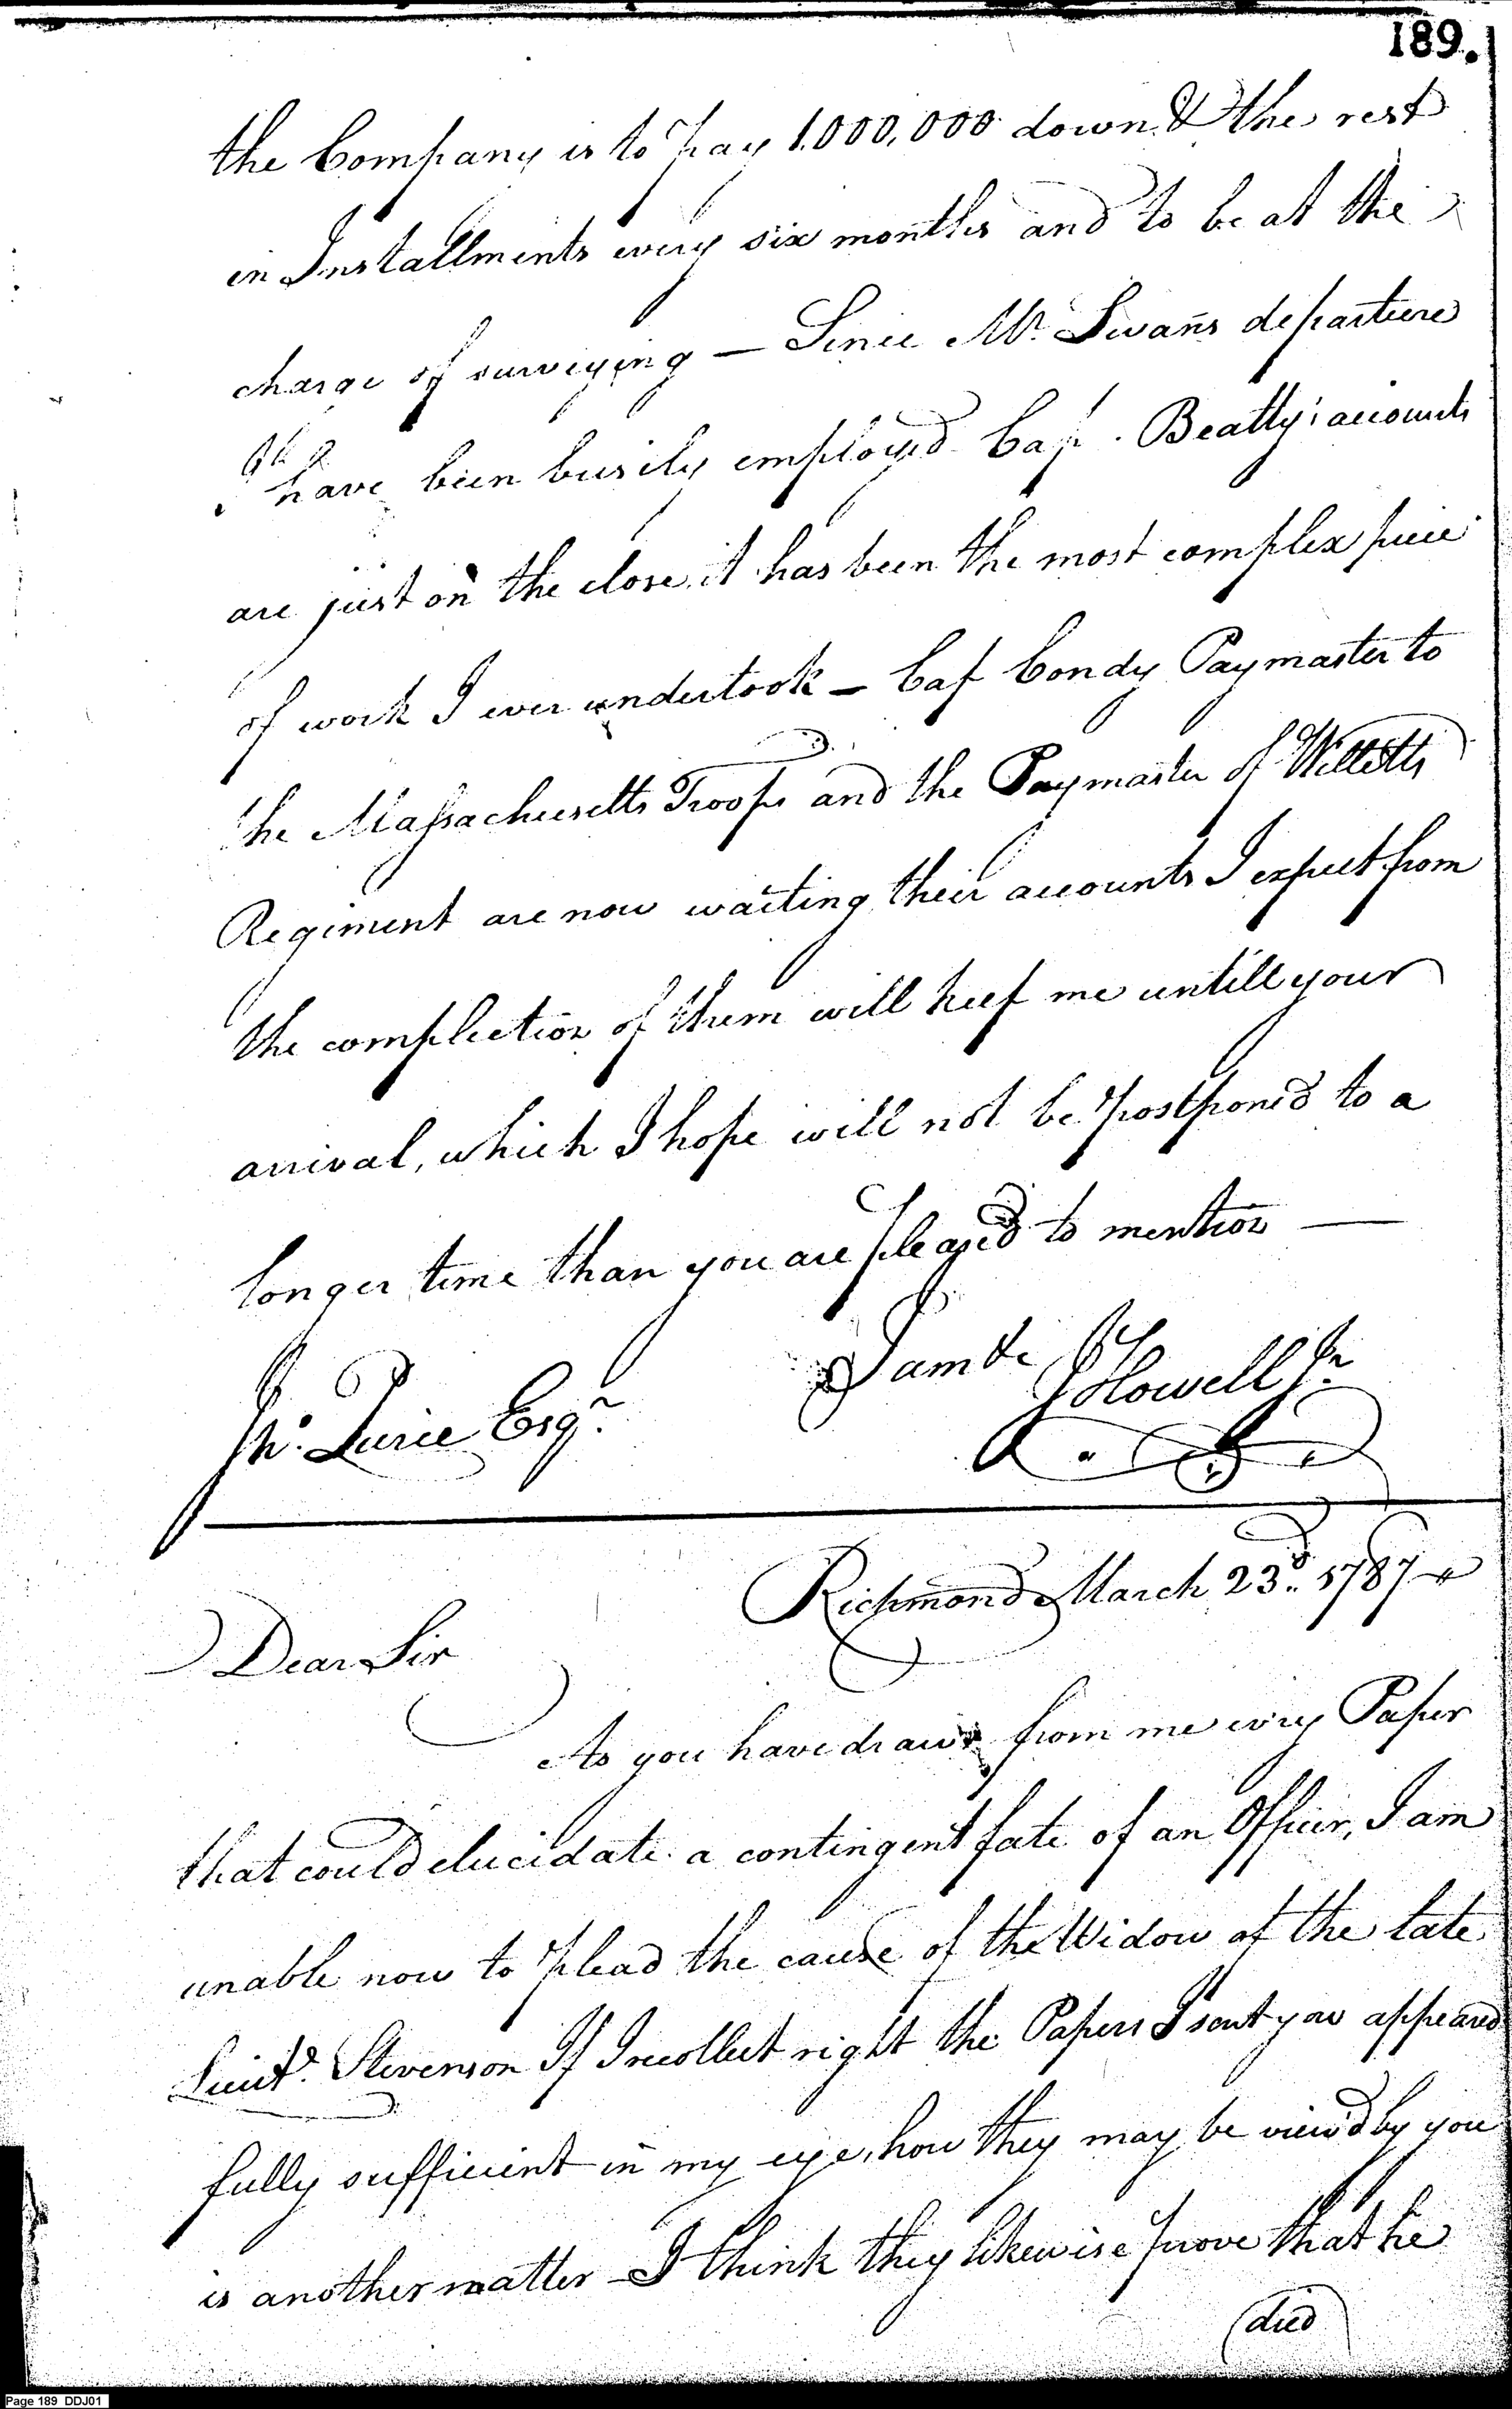 189.
the Company is to pay 1.000,000 down & the rest
in Installments every six months and to be at the
charge of surveying — Since Mr. Swans departure
I have been busily employed Cap. Beatty's accounts
are just on the close, it has been the most complex piece
of work I ever undertook — Cap Condy Paymaster to
the Massachusetts Troops and the Paymaster of Willetts
Regiment are now waiting their accounts I expect from
the complection of them will keep me untill your
arrival, which I hope will not be postponed to a
longer time than you are pleased to mention —
I am &c
J Howell Jr.
Jno. Pierce Esqr.
Richmond March 23d. 1787
Dear Sir
As you have drawn from me every Paper
that could elucidate a contingent fate of an Officer, I am
unable now to plead the cause of the Widow of the late
Lieut. Stevenson If I recollect right the Papers I sent you appeared
fully sufficient in my eye, how they may be view'd by you
is another matter — I think they likewise prove that he
died
Page 189 DDJ01